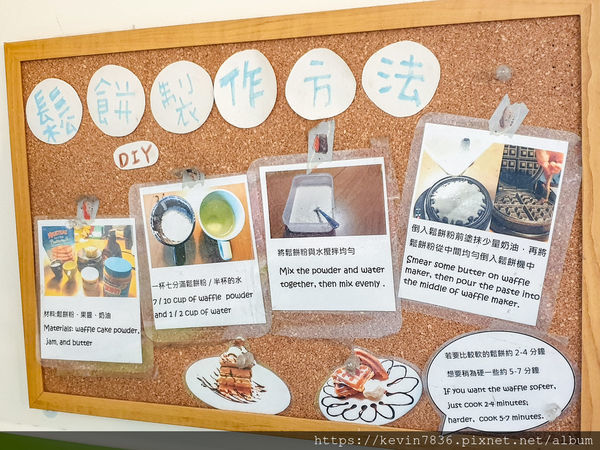 鬆餅製作方法
DIY
材料:鬆餅粉、果醬、奶油
Materials: waffle cake powder,
jam, and butter
一杯七分滿鬆餅粉 / 半杯的水
7 / 10 Cup of waffle powder
and 1 / 2 Cup of water
將鬆餅粉與水攪拌均勻
Mix the powder and water
together, then mix evenly .
倒入鬆餅粉前塗抹少量奶油，再將
鬆餅粉從中間均勻倒入鬆餅機中
Smear some butter on waffle
maker, then pour the paste into
the middle of waffle maker.
若要比較軟的鬆餅約 2-4 分鐘
想要稍為硬一些約 5-7 分鐘
If you want the waffle softer,
just cook 2-4 minutes;
harder, cook 5-7 minutes.
https://kevin7836.pixnet.net/album